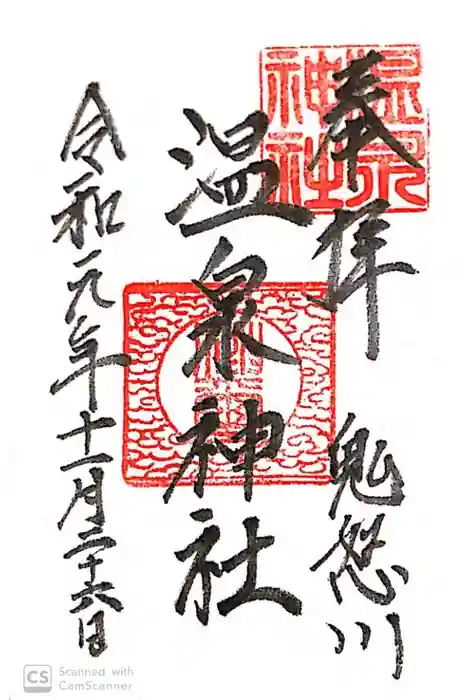 奉拝 鬼怒川
温泉神社
令和元年十一月二十六日
温泉
神社
CS Scanned with
CamScanner